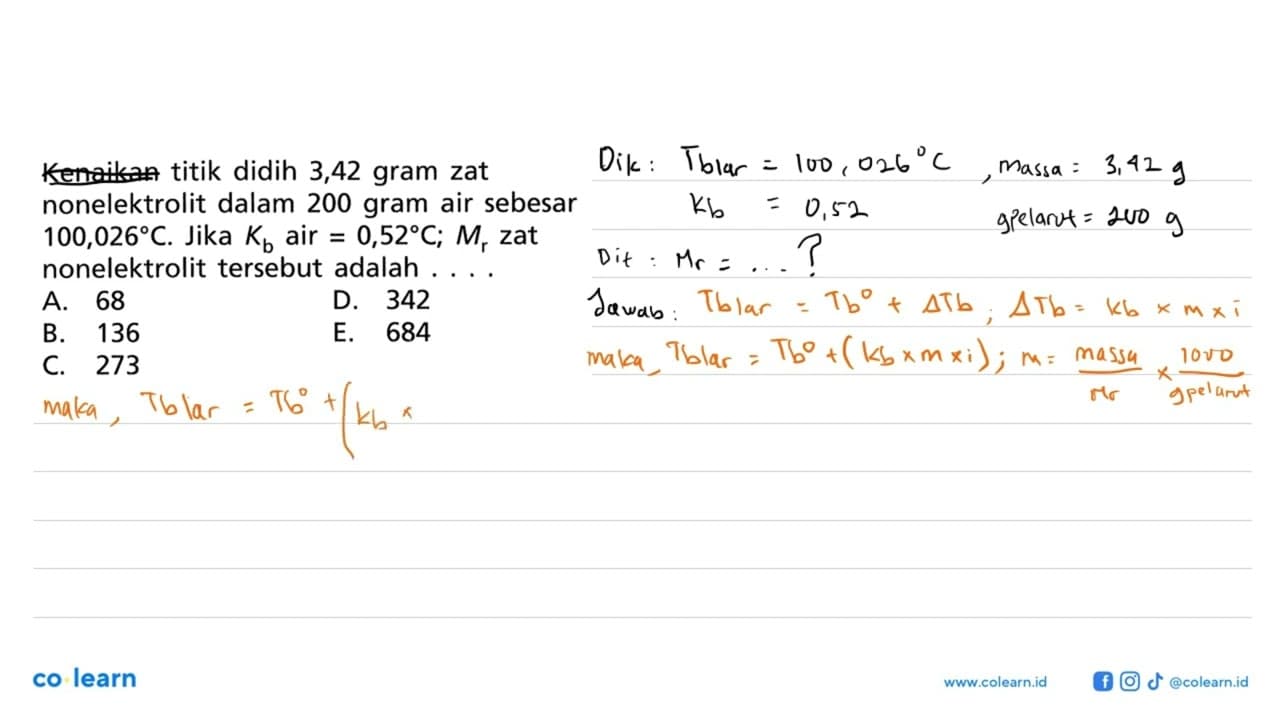 Kenaikan titik didih 3,42 gram zat
nonelektrolit dalam 200 gram air sebesar
100,026°C. Jika Kb air = 0,52°C; Mr zat
nonelektrolit tersebut adalah . . . .
A. 68 D. 342
B. 136 E. 684
C. 273
Dik : Tblar = 100,026°C , massa = 3,42 g
kb = 0,52 gpelarut = 200 g
Dit : Mr = ... ?
Jawab : Tblar = Tb° + ΔTb ; ΔTb = kb × m × i
maka, Tblar = Tb° + (kb × m × i) ; m = massa/Mr × 1000/gpelarut
maka, Tblar = Tb° + (kb ×
co learn
www.colearn.id @colearn.id